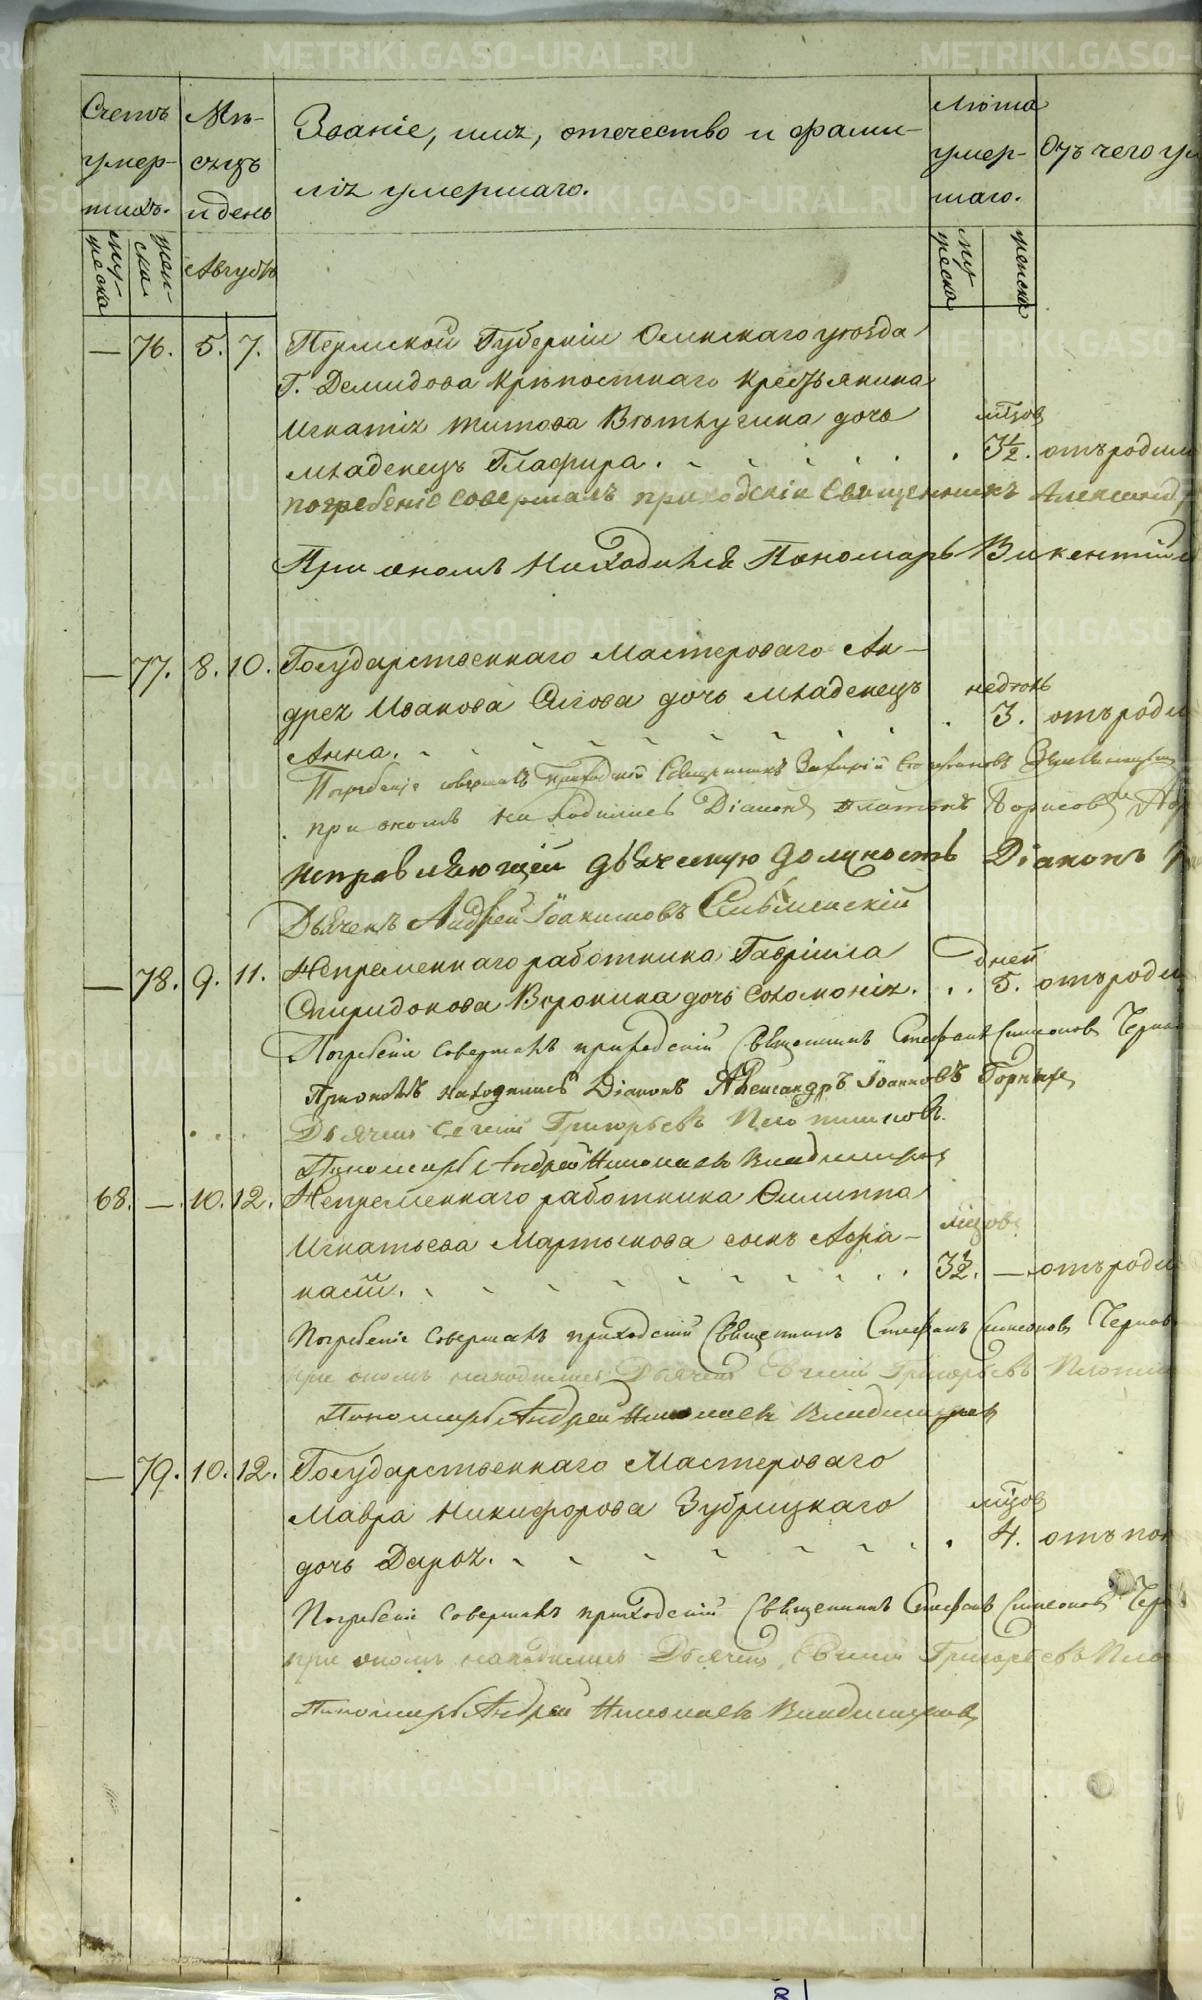 Счетъ умер-шихъ.
Мѣ-сяцъ и день
Званіе, имя, отечество и фами-
лія умершаго.
Лѣта умер-шаго.
Отъ чего ум
муж-еска
жен-ска
Августъ
му-жеска
женска
— 76. 5. 7. Пермской Губерніи Осинскаго уѣзда
Г. Демидова крѣпостнаго крестьянина
Игнатія Титова Вѣтлугина дочь мѣсцов
младенецъ Глафира. 3½. отъ родим
погребеніе совершалъ приходскій Священникъ Александр
При ономъ находился Пономарь Викентій
— 77. 8. 10. Государственнаго Мастероваго Ан-
дрея Иванова Сигова дочь младенецъ недѣль
Анна. 3. отъ роди
Погребеніе совершалъ Приходской Священникъ Захарій Стефановъ
при ономъ находились Діаконъ Платонъ Борисовъ
исправляющій дьяческую должность Діаконъ
Дьячекъ Андрей Іоакимовъ
— 78. 9. 11. Непременнаго работника Гавріила дней
Спиридонова Воронина дочь Соломонія. 5. отъ роди
Погребеніе совершалъ приходскій Священникъ Стефанъ Симеоновъ Черно
При ономъ находились Діаконъ Александръ Іоанновъ Горныхъ
Дьячекъ Евгеній Григорьевъ Плотниковъ.
Пономарь Андрей Николаевъ Владимировъ
68. — 10. 12. Непременнаго работника Филиппа
Игнатьева Мартынова сынъ Афа- мѣсцов
насій. 3½. — отъ роди
Погребеніе совершалъ приходскій Священникъ Стефанъ Симеоновъ Чернов
при ономъ находились Дьячекъ Евгеній Григорьевъ Плотни
Пономарь Андрей Николаевъ Владимировъ
— 79. 10. 12. Государственнаго Мастероваго
Мавра Никифорова Зубрицкаго мѣсцов
дочь Дарья. 4. отъ пон
Погребеніе совершалъ приходскій Священникъ Стефанъ Симеоновъ Чер
при ономъ находились Дьячекъ Евгеній Григорьевъ Пло
Пономарь Андрей Николаевъ Владимировъ
METRIKI.GASO-URAL.RU